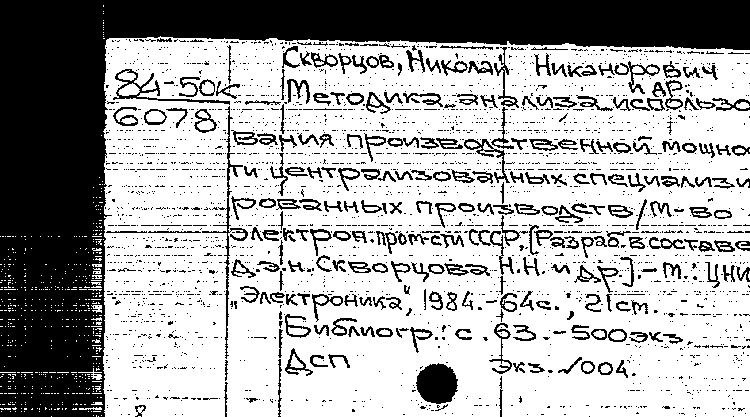 Скворцов, Николай Никанорович
и др.
84-50к Методика анализа использо
6078
вания производственной мощнос
ти централизованных специализи
рованных производств/М-во
электрон.пром-сти СССР, [Разраб. в составе
д.э.н. Скворцова Н.Н. и др.].-М.: ЦНИ
"Электроника", 1984.-64с.; 21см.
Библиогр.: с. 63.-500экз.
ДСП Экз. √004.